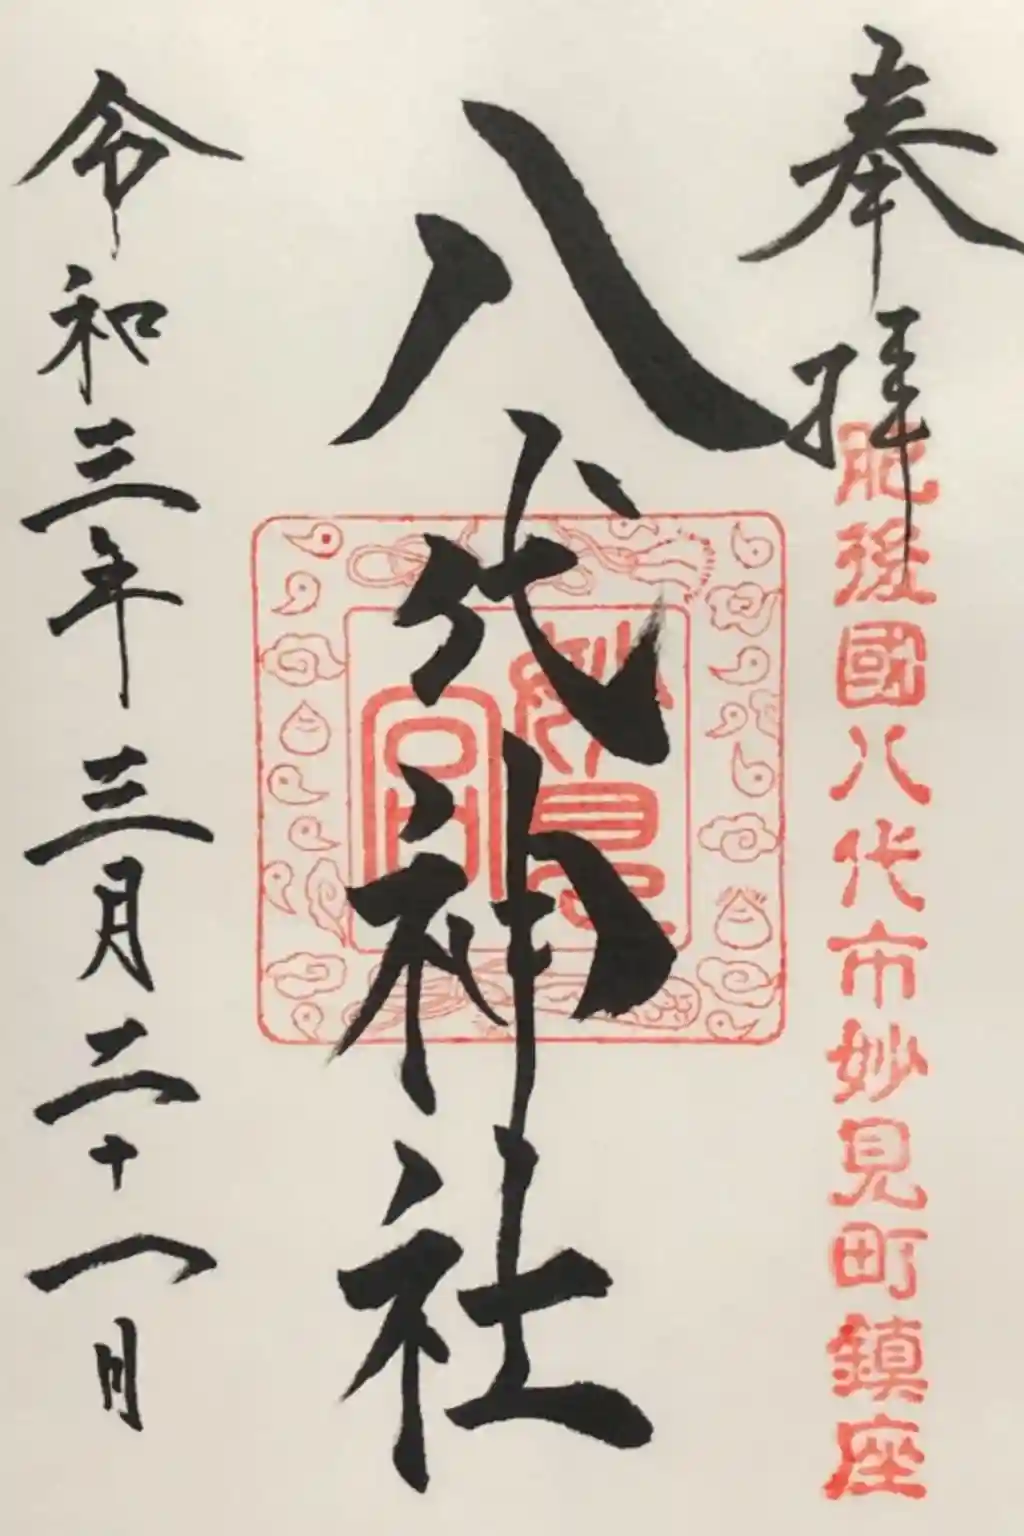 奉拝
肥後國八代市妙見町鎮座
八代神社
妙見宮
令和三年三月二十一日